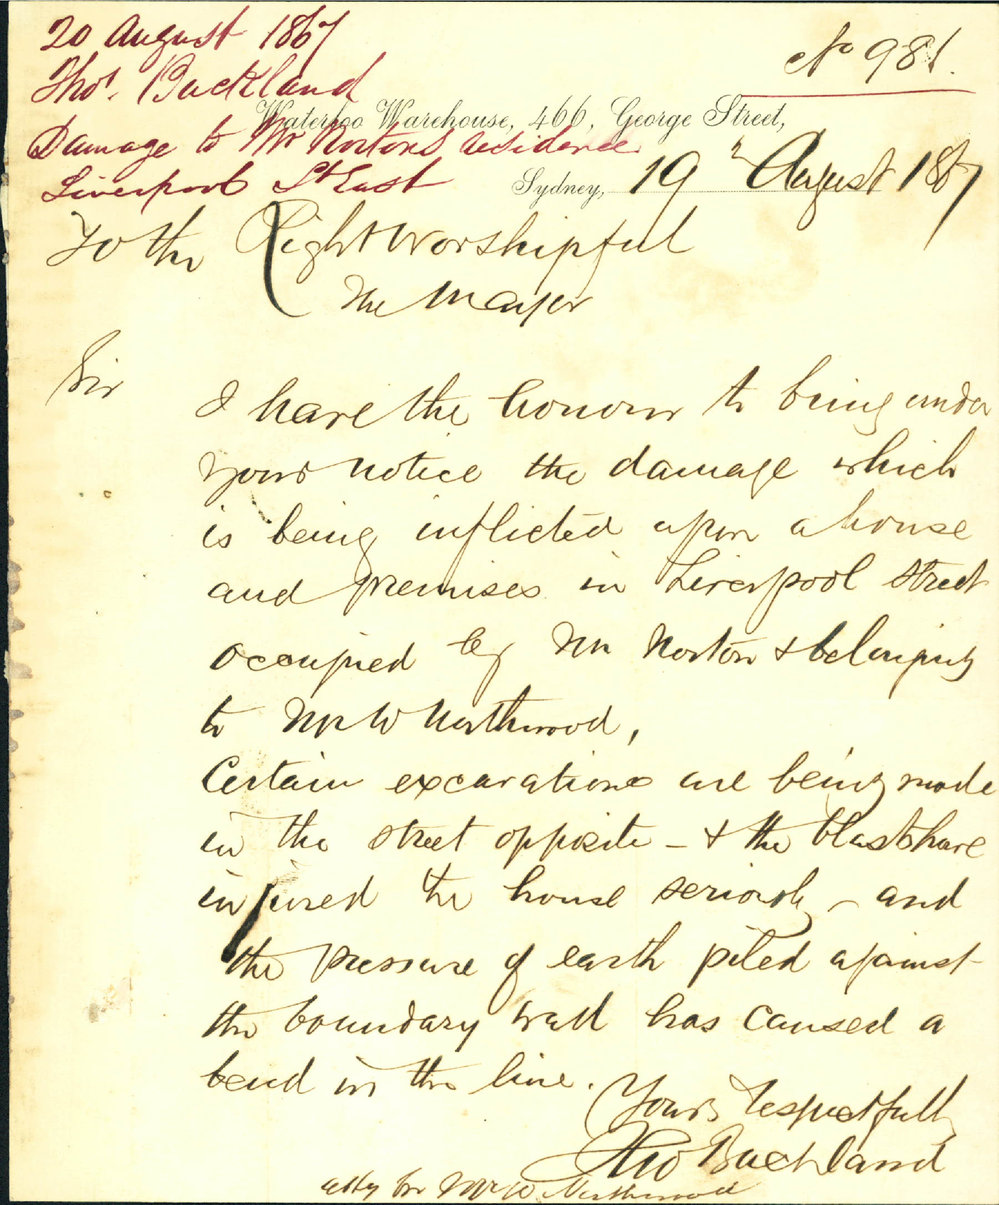 20 August 1867
Thos. Buckland
Damage to Mr Nortons residence
Liverpool St East
No 981.
Waterloo Warehouse, 466, George Street,
Sydney, 19th August 1867
To the Right Worshipful
The Mayor
Sir
I have the honour to bring under
your notice the damage which
is being inflicted upon a house
and premises in Liverpool Street
occupied by Mr Norton & belonging
to Mr W Northwood,
Certain excavations are being made
in the street opposite - & the blasts have
injured the house seriously - and
the pressure of earth piled against
the boundary wall has caused a
bend in the line.
Yours respectfully
Thos Buckland
atty for Mr W. Northwood